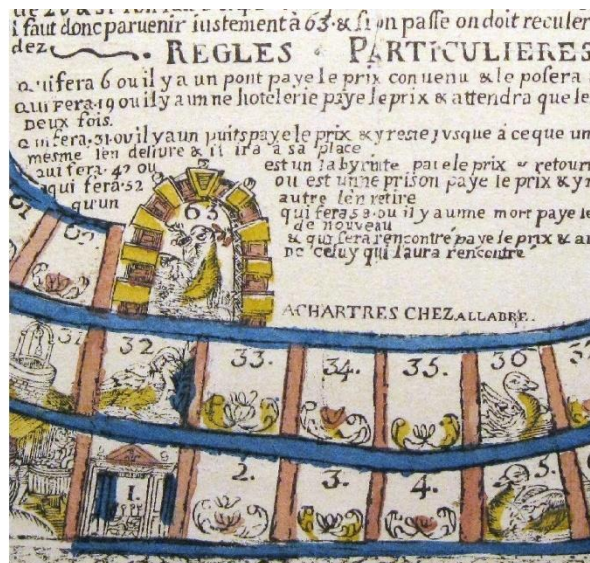 de 26 & si lon
i faut donc paruenir iustement à 63. & si on passe on doit reculer
dez
REGLES PARTICULIERES
qui fera 6 ou il y a un pont paye le prix conuenu & le posera
qui fera 19 ou il y a un ne hotelerie paye le prix & attendra que le
Deux fois.
qui fera 31 ou il y a un puits paye le prix & y reste jvsque à ce que un
mesme len deliure & il ira à sa place
qui fera 42 ou est un labyrinte paie le prix & retourn
qui fera 52 ou est unne prison paye le prix & y r
qu'un autre len retire
qui fera 58 ou il y a unne mort paye le
de nouveau
& qui sera rencontré paye le prix & a
de celuy qui laura rencontré
63
A CHARTRES CHEZ ALLABRE.
61 62
31 32 33. 34. 35. 36 37
1. 2. 3. 4. 5.